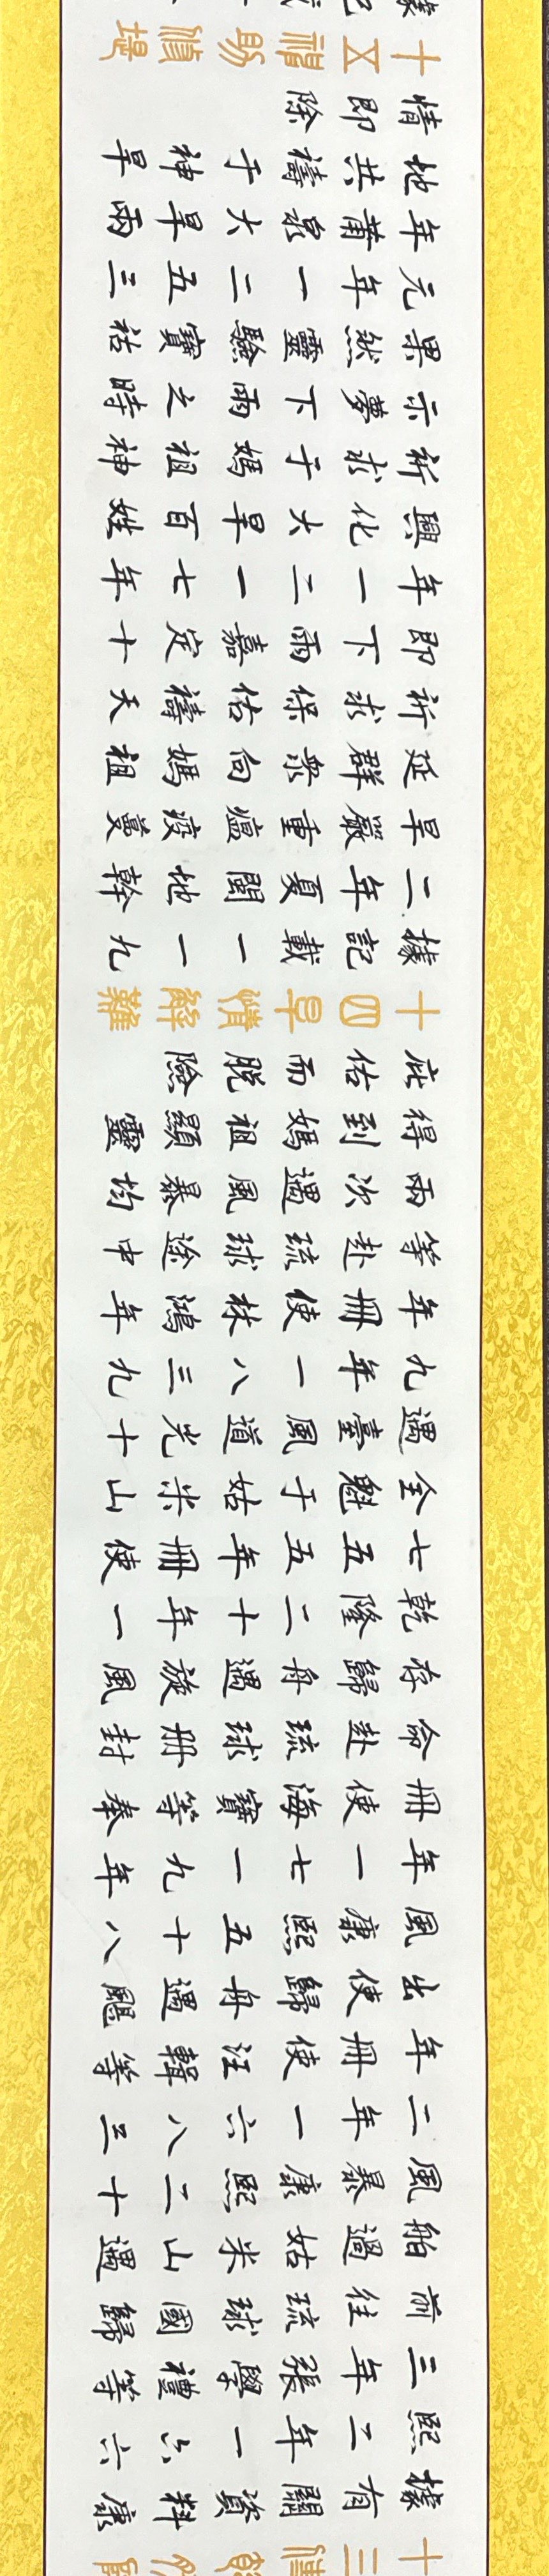 據有關資料康
熙二年一六六
三年張學禮等
前往琉球國歸
舶過姑米山遇
風暴康熙二十
二年一六八三
年冊使汪輯等
出使歸舟遇颶
風康熙五十八
年一七一九年
冊使海寶等奉
命赴琉球冊封
存歸舟遇旋風
乾隆二十年一
七五五年冊使
全魁于姑米山
遇臺風道光十
九年一八三九
年冊使林鴻年
等赴琉球途中
兩次遇風暴均
得到媽祖顯靈
庇佑而脫險
十四旱情解難
據記載一一九
二年夏閩地幹
旱嚴重瘟疫蔓
延群眾向媽祖
祈求保佑禱天
即下雨嘉定十
年一二一七年
興化大旱百姓
祈求于媽祖神
示夢下雨之時
果然靈驗寶祐
元年一二五三
年莆泉大旱兩
地共禱于神旱
情即除
十五 堤